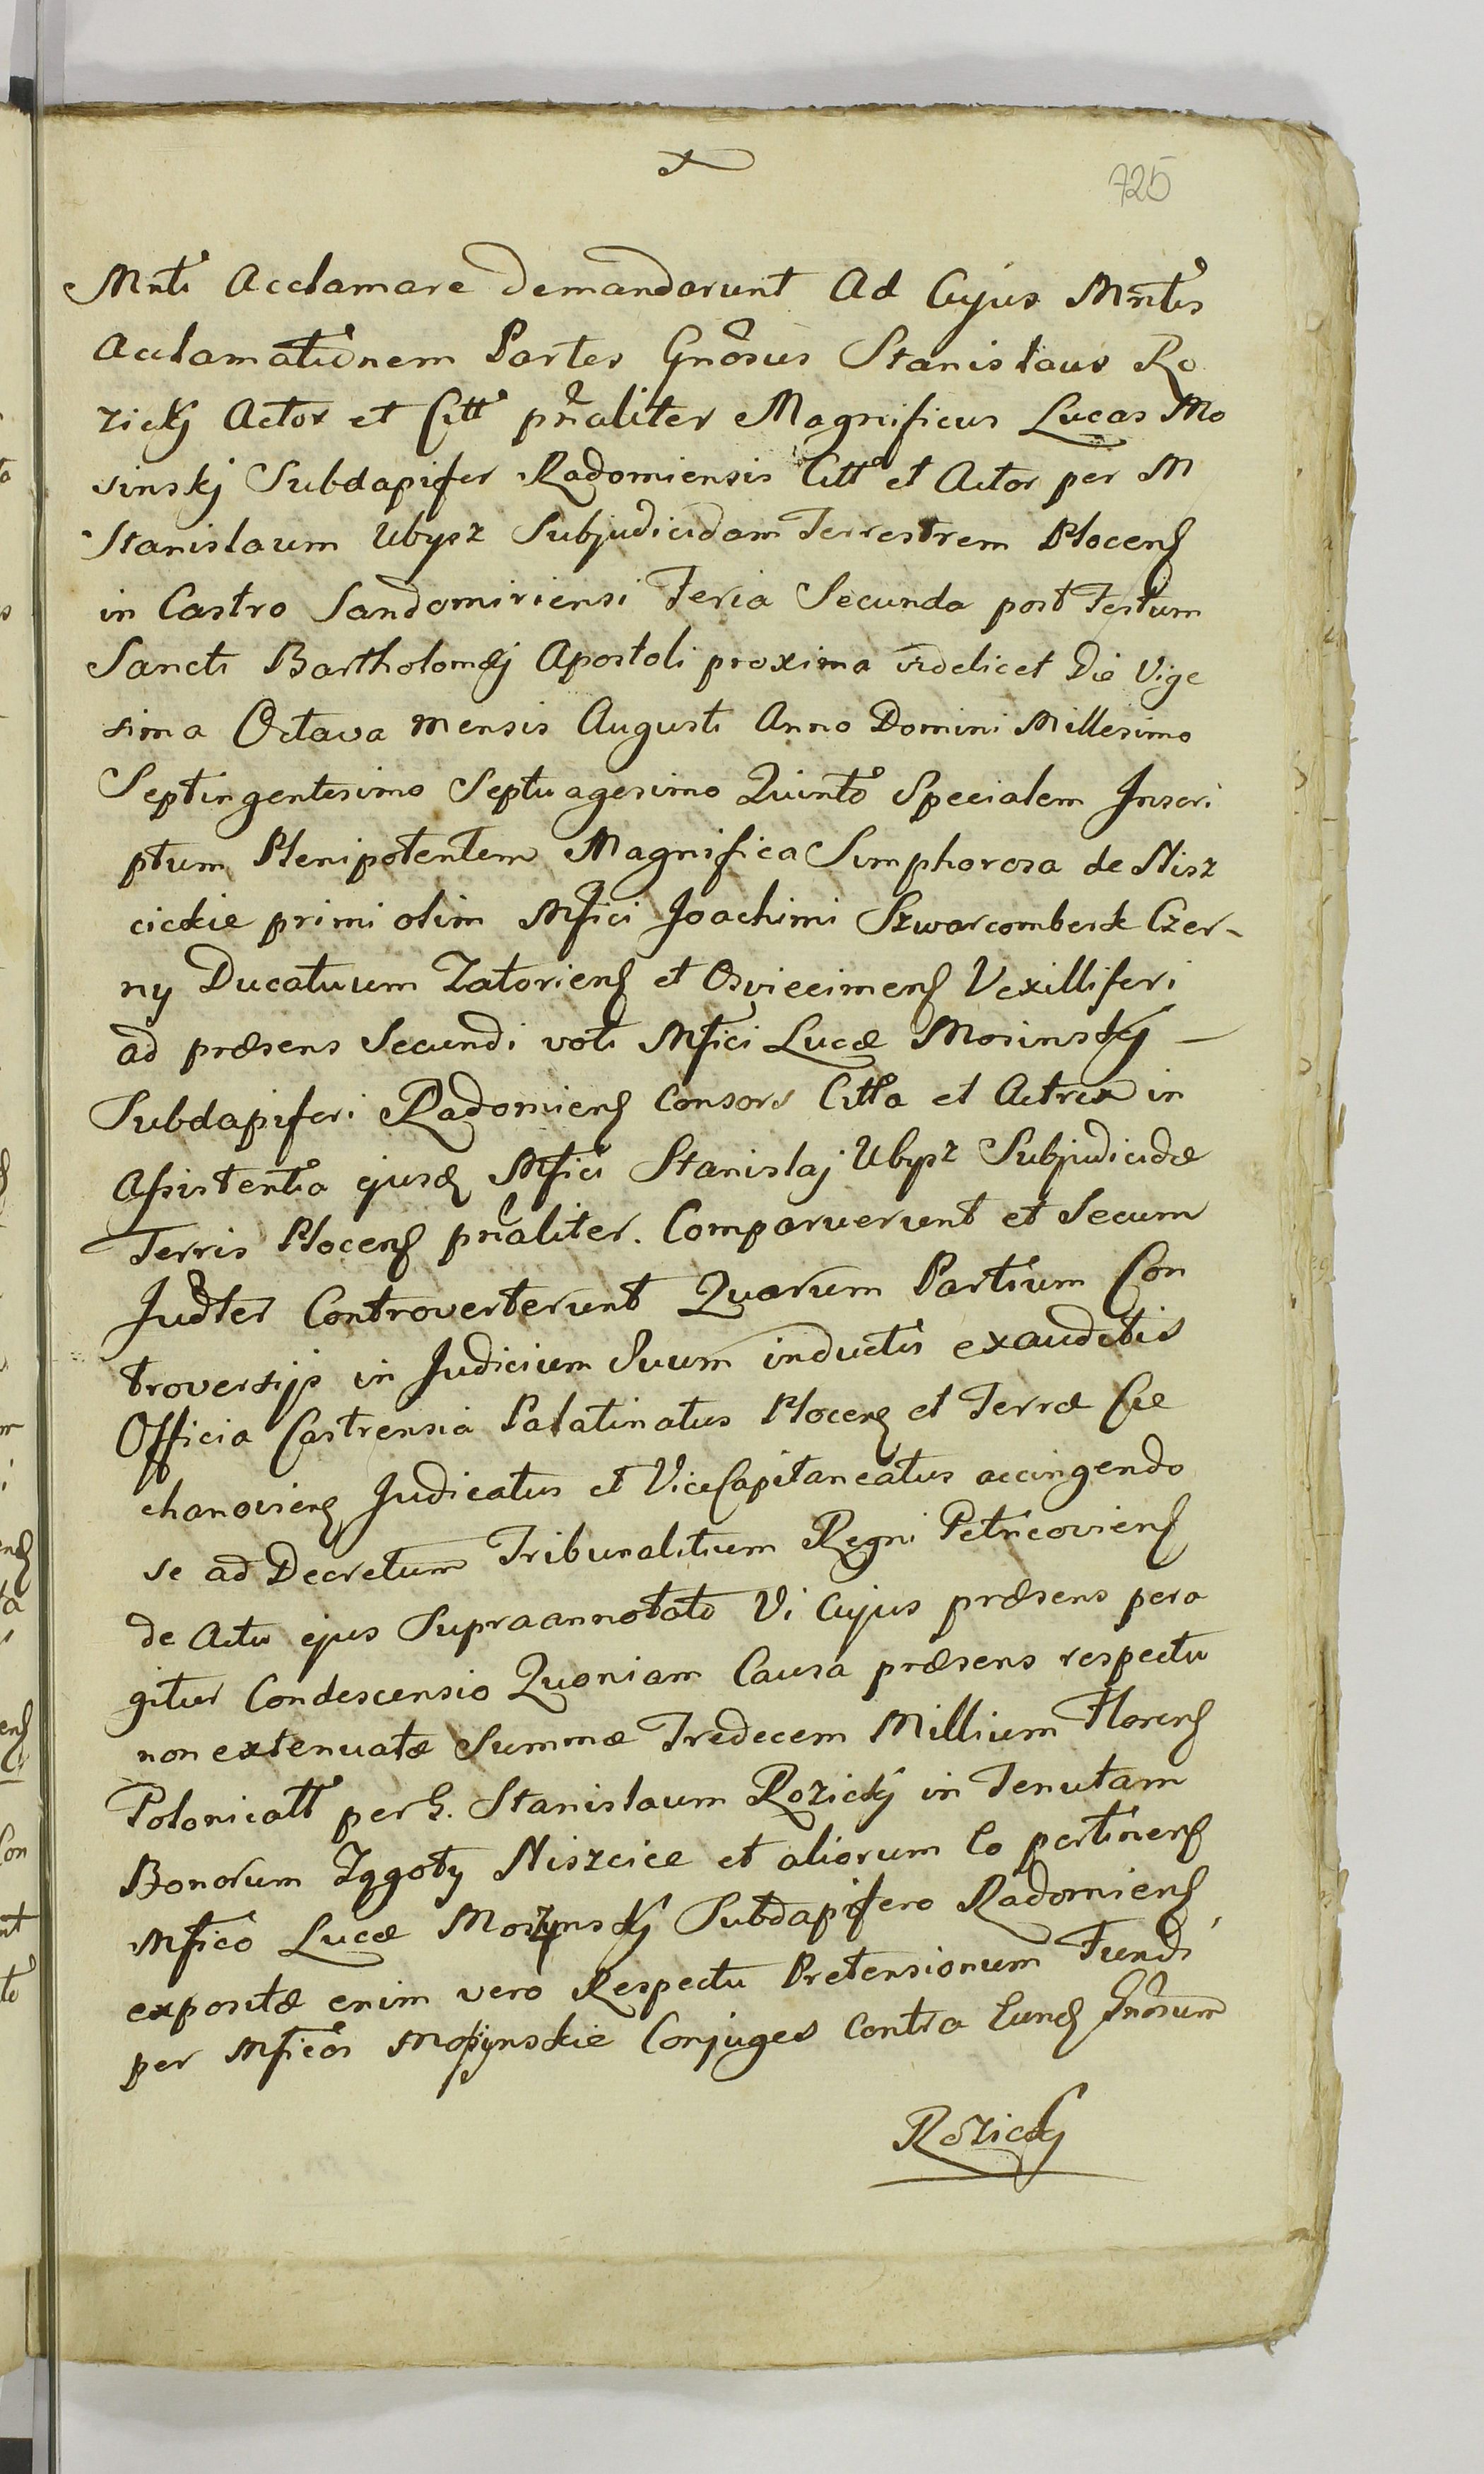 725
Mnti Acclamare Demandarunt Ad Cujus Mntis
Acclamationem Partes Gnosus Stanislaus Ro
zickj Actor et Citt pnaliter Magnificus Lucas Mo
sinskj Subdapifer Radomiensis Citt et Actor per M
Stanislaum Ubysz Subjudicidam Terrestrem Plocens
in Castro Sandomiriensi Feria Secunda post Festum
Sancti Bartholomæj Apostoli proxima videlicet Die Vige
sima Octava mensis Augusti Anno Domini Millesimo
Septingentesimo Septuagesimo Quinto Specialem Inscri
ptum Plenipotentem Magnifica Simphorosa de Nisz
cickie primi olim Mfici Joachimi Szwarcomberk Czer-
ny Ducatuum Zatoriens et Osviecimens Vexilliferi
ad præsens Secundi voti Mfici Lucæ Mosinskj -
Subdapiferi Radomiens Consors Citta et Actrix in
Assistentia ejusd Mfici Stanislaj Ubysz Subjudicidæ
Terris Plocens pnaliter. Comparuerunt et Secum
Judter Controverterunt Quarum Partium Con
troversijs in Judicium Suum inductis exauditis
Officia Castrensia Palatinatus Plocens et Terræ Cie
chanoviens Judicatus et ViceCapitaneatus accingendo
se ad Decretum Tribunalitium Regni Petricoviens
de Actu ejus Supraannotato Vi Cujus præsens pera
gitur Condescensio Quoniam Causa præsens respectu
non extenuatæ Summæ Tredecem Millium Florens
Polonicatt per G. Stanislaum Rozickj in Tenutam
Bonorum Zągoty Niszcice et aliorum Eo pertinens
Mfico Lucæ Moszynskj Subdapifero Radomiens
expositæ enim vero Respectu Pretensionum Fundi
per Mficos Mosynskie Conjuges Contra Eund Gnosum
Rozickj